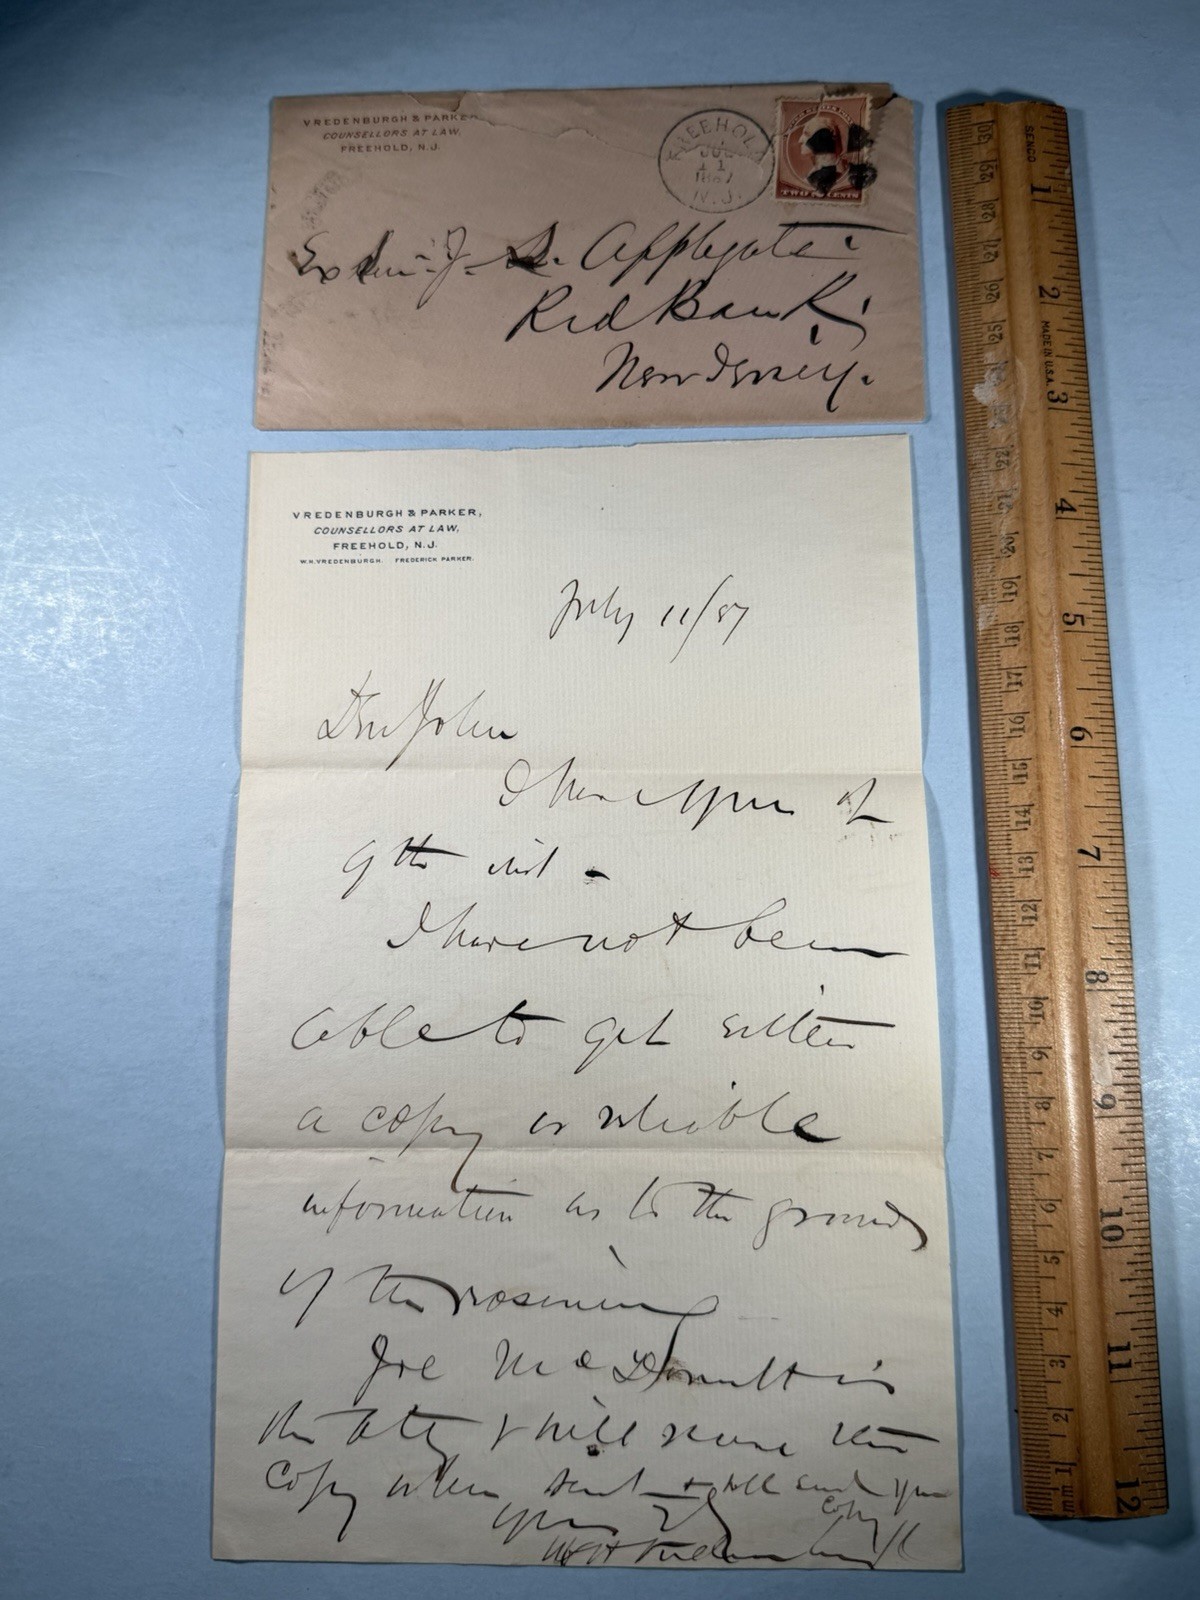 VREDENBURGH & PARKER
COUNSELLORS AT LAW,
FREEHOLD, N.J.
FREEHOLD
JUL
11
1887
N.J.
TWO CENTS
J. S. Applegate
Red Bank,
New Jersey.
VREDENBURGH & PARKER,
COUNSELLORS AT LAW,
FREEHOLD, N.J.
W.H.VREDENBURGH. FREDERICK PARKER.
July 11/87
Dear John
I have yours of
9th inst -
I have not been
able to get either
a copy or reliable
information as to the grounds
of the reasoning
Joe McDermott is
the atty & will secure the
copy when sent & will send you
copy
Yours
W H Vredenburgh
SENCO
MADE IN U.S.A.
1
2
3
4
5
6
7
8
9
10
11
12
30
29
28
27
26
25
22
20
19
18
17
16
15
14
13
12
11
10
9
8
7
6
5
4
3
2
1
mm